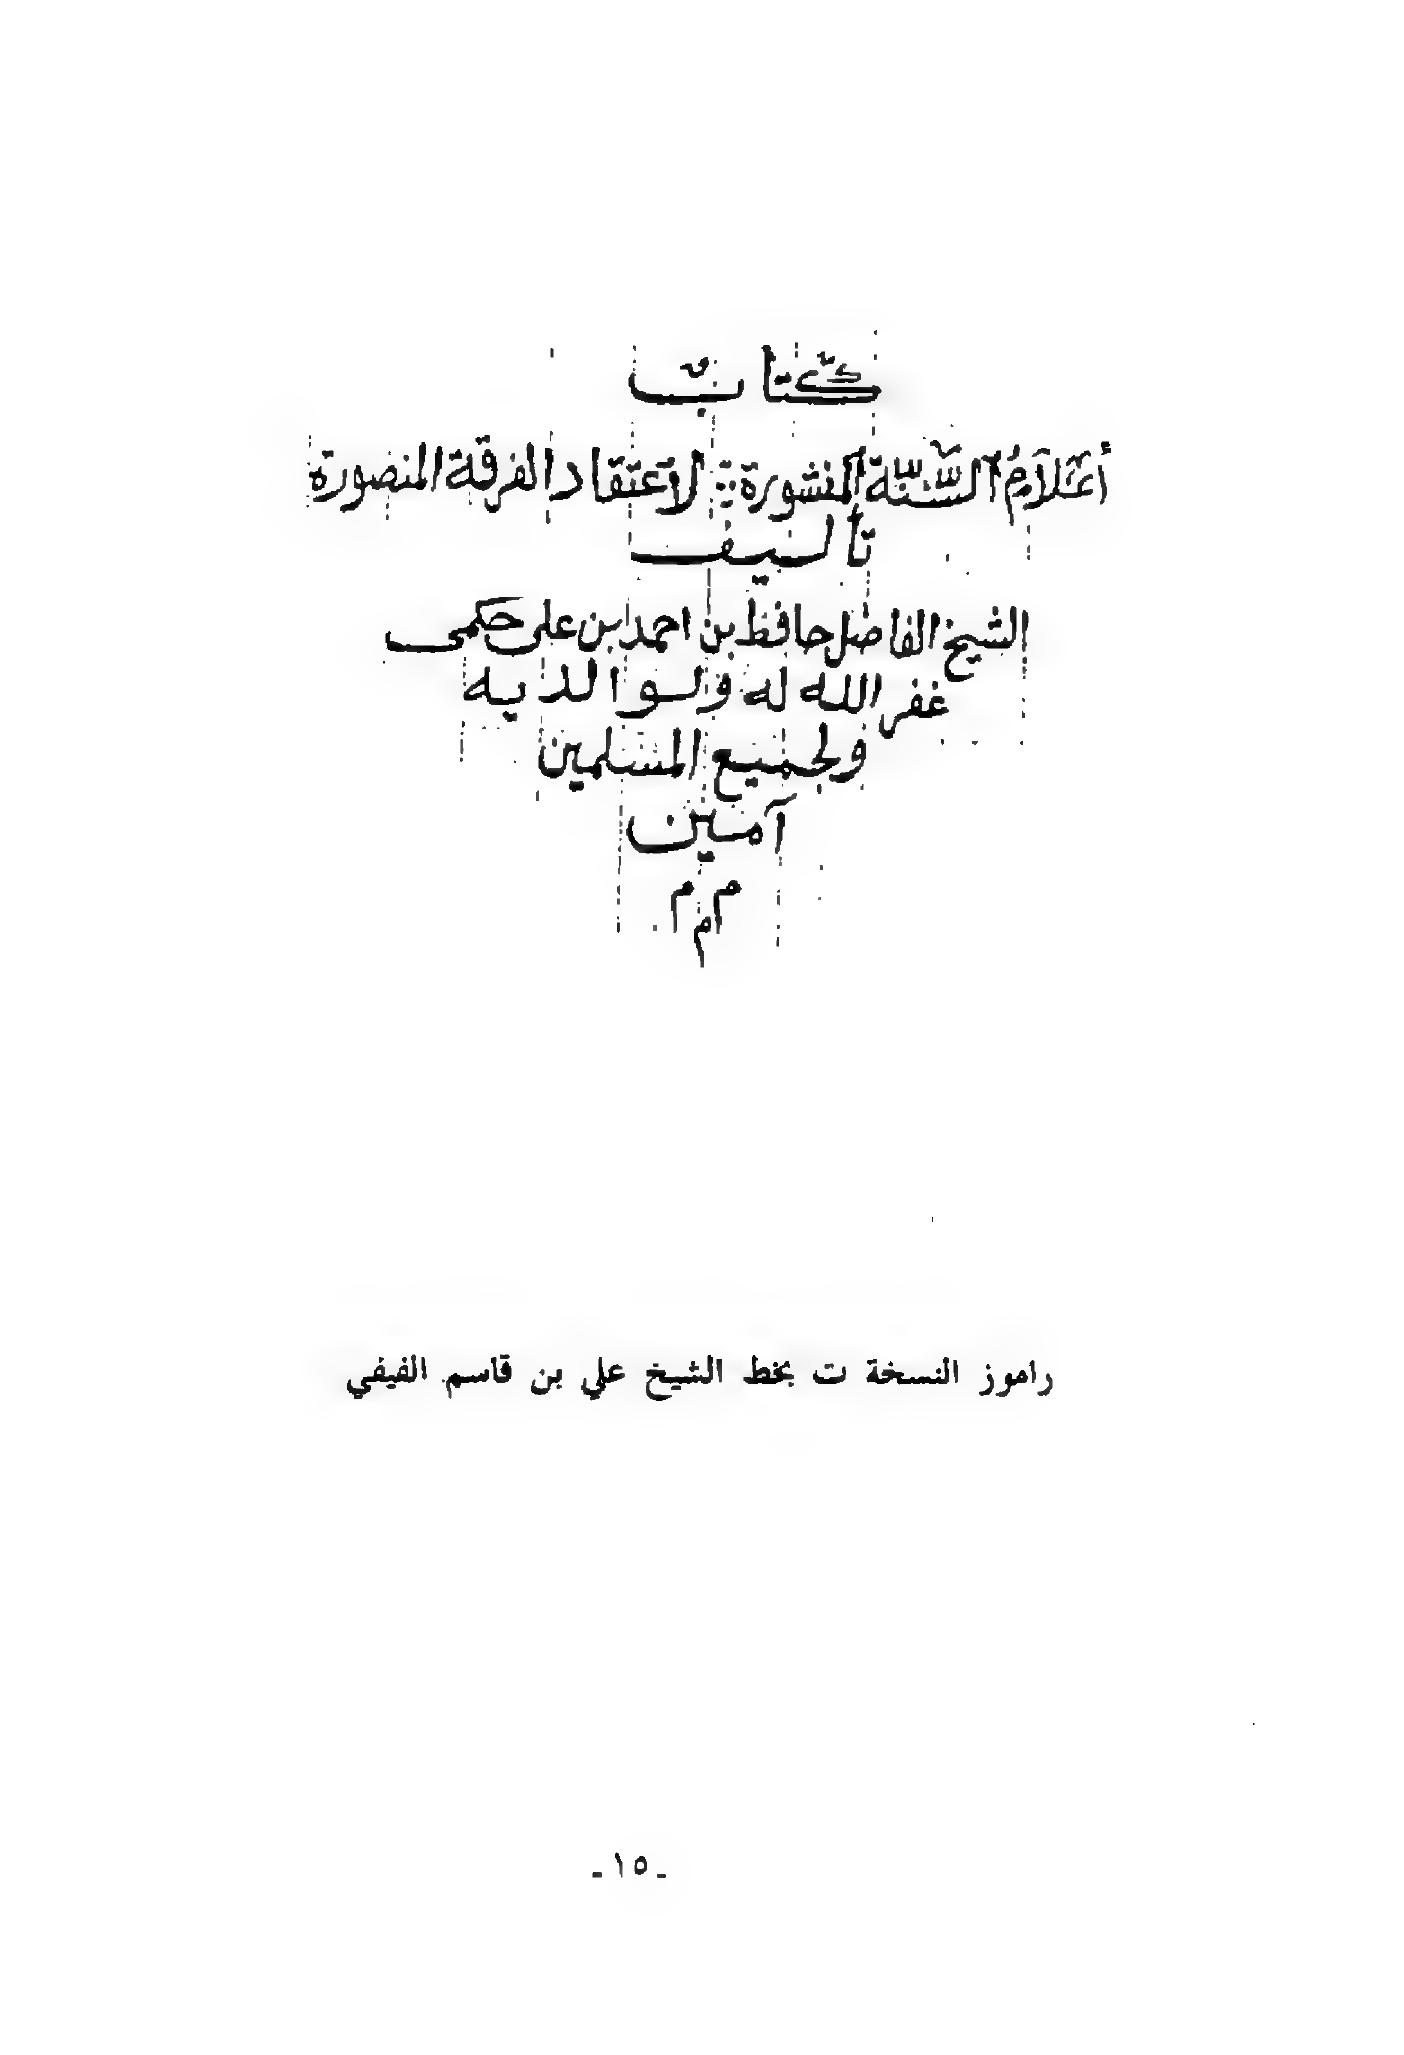 كتاب
أعلام السنة المنشورة :: لاعتقاد الفرقة المنصورة
تأليف
الشيخ الفاضل حافظ بن احمد بن على حكمى
غفر الله له ولوالديه
ولجميع المسلمين
آمين
م م
م
راموز النسخة ت بخط الشيخ علي بن قاسم الفيفي
ـ ١٥ ـ